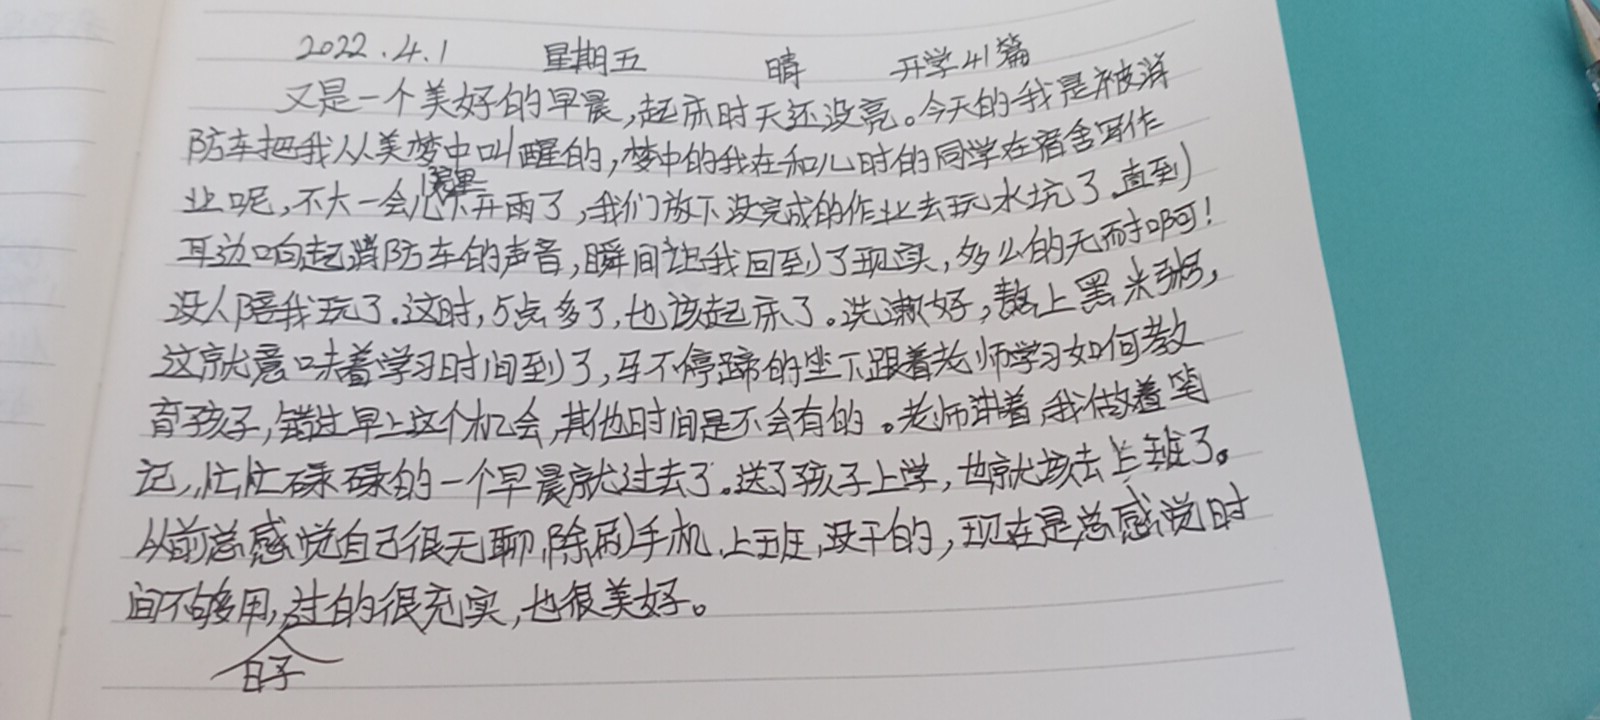 2022.4.1 星期五 晴 开学41篇
又是一个美好的早晨,起床时天还没亮。今天的我是被消
防车把我从美梦中叫醒的,梦中的我在和儿时的同学在宿舍写作
业呢,不大一会儿下开雨了,我们放下没完成的作业去玩水坑了,直到
耳边响起消防车的声音,瞬间让我回到了现实,多么的无耐啊!
没人陪我玩了。这时,5点多了,也该起床了。洗漱好,熬上黑米粥,
这就意味着学习时间到了,马不停蹄的坐下跟着老师学习如何教
育孩子,错过早上这个机会,其他时间是不会有的。老师讲着,我做着笔
记,忙忙碌碌的一个早晨就过去了。送了孩子上学,也就该去上班了。
从前总感觉自己很无聊,除刷手机,上班,没干的,现在是总感觉时
间不够用,过的很充实,也很美好。
日子